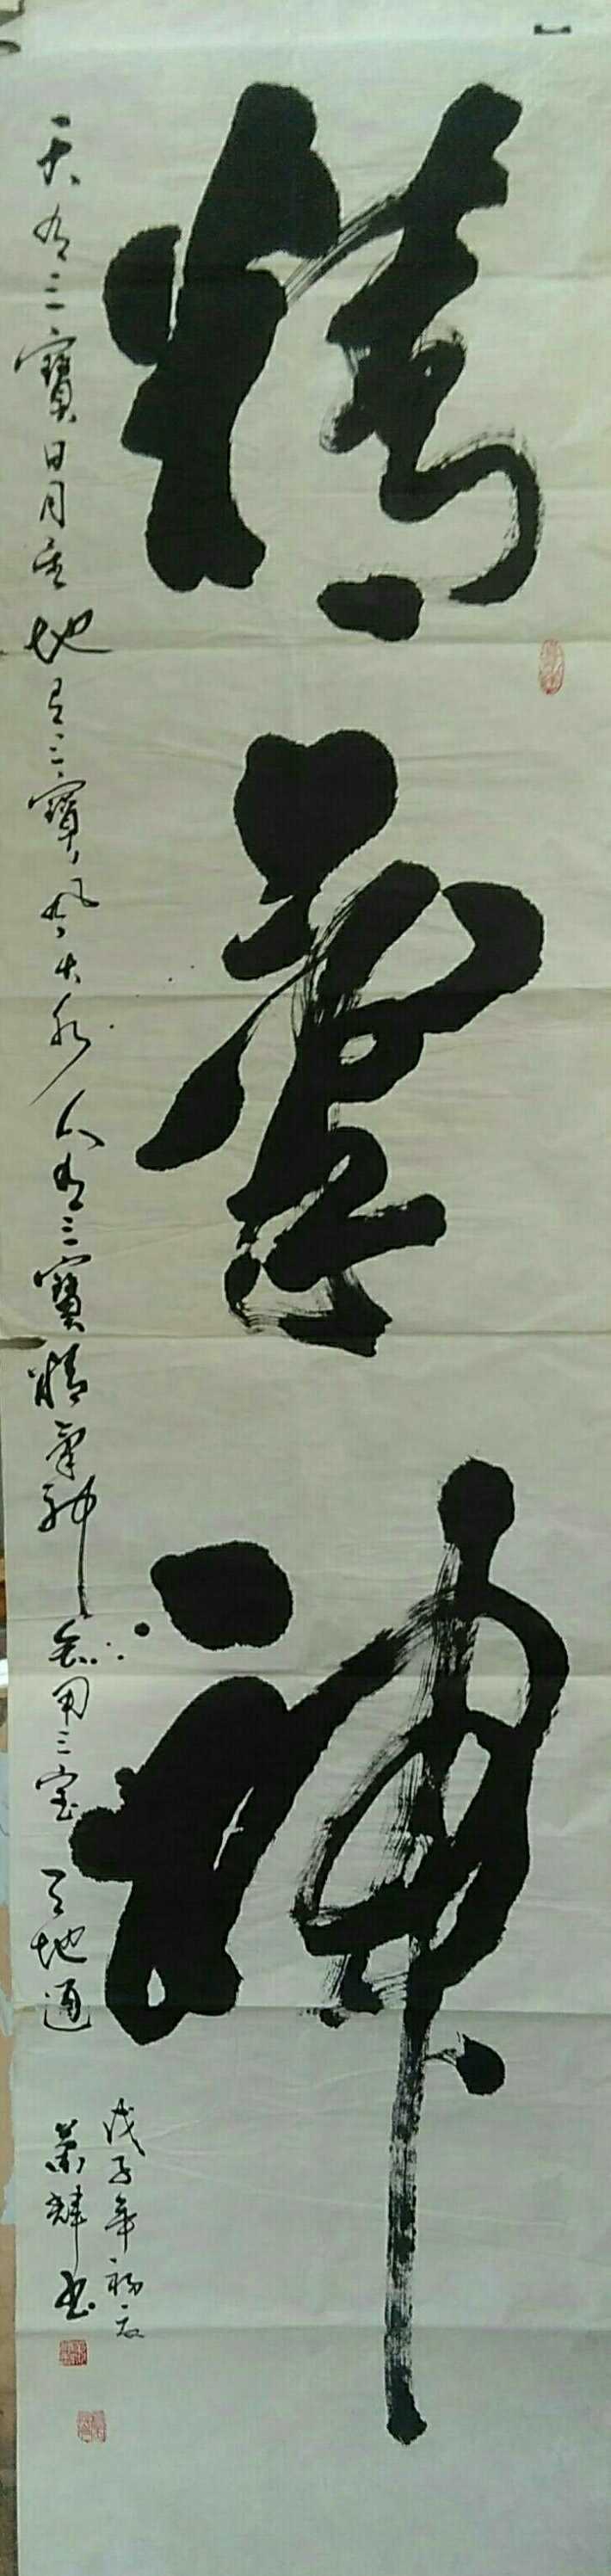 精氣神
天有三寶日月星地有三寶風火水人有三寶精氣神用三宝天地通
戊子年初夏
輝书